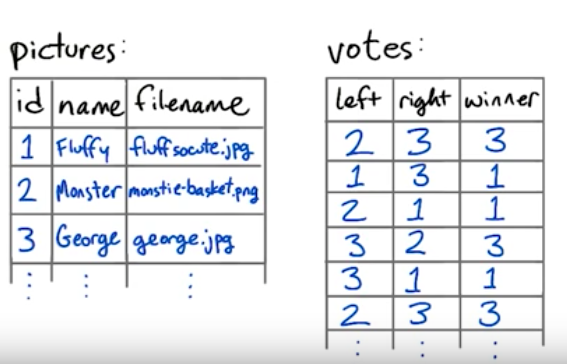 pictures:
id name filename
1 Fluffy fluffsocute.jpg
2 Monster monstie-basket.png
3 George george.jpg
⋮ ⋮ ⋮
votes:
left right winner
2 3 3
1 3 1
2 1 1
3 2 3
3 1 1
2 3 3
⋮ ⋮ ⋮